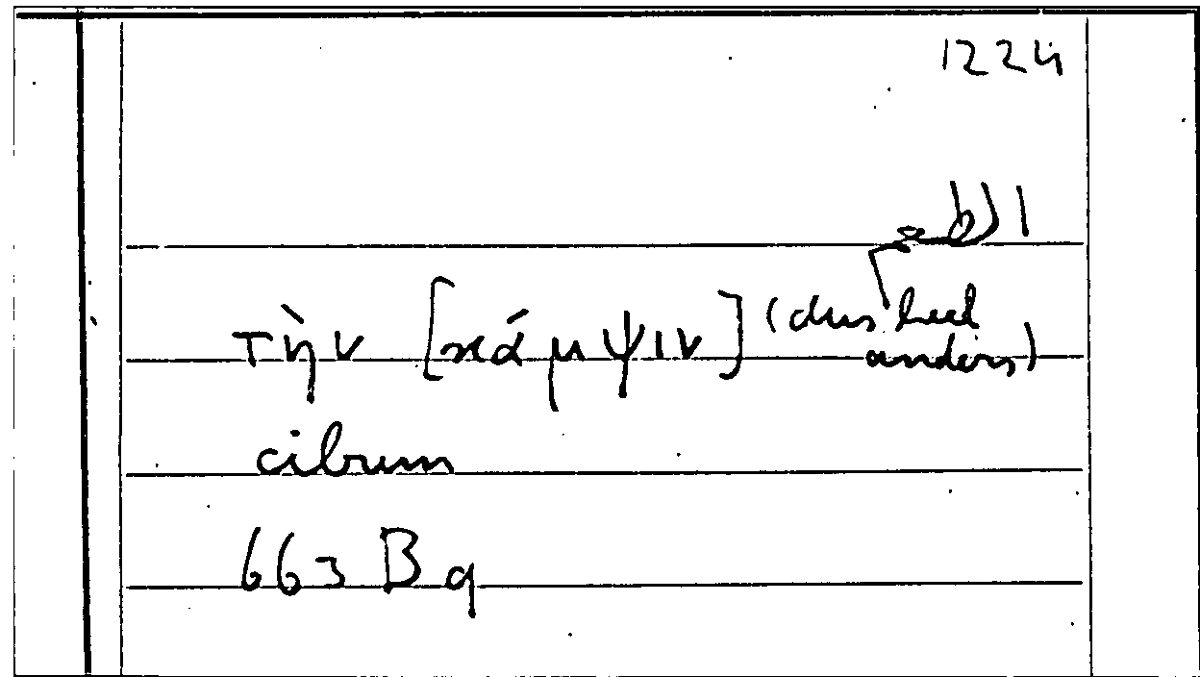 1224
τὴν [κάμψιν] (dus heel
anders)
cibum
663 B 9